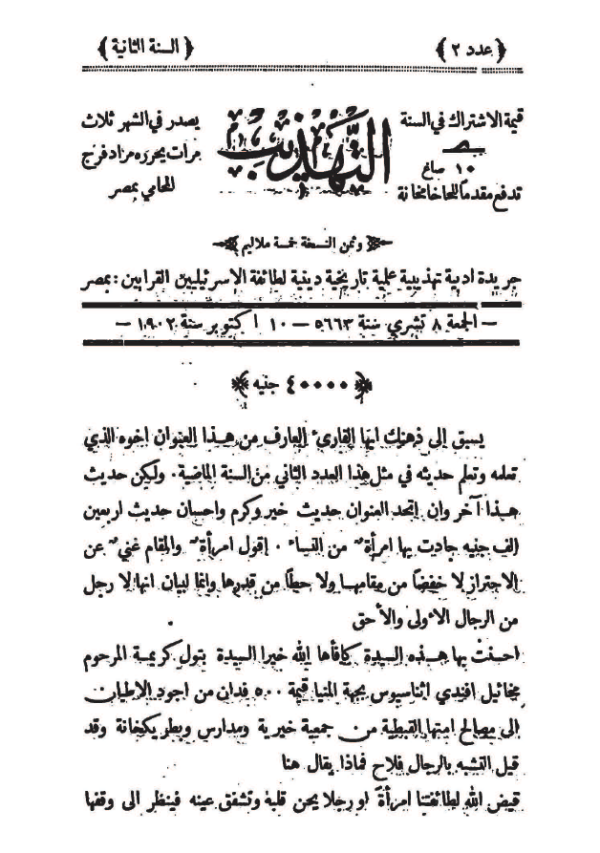 ﴿ عدد ٢ ﴾
﴿ السنة الثانية ﴾
قيمة الاشتراك في السنة
١٠ صاغ
تدفع مقدماً للحاخامخانة
التهذيب
يصدر في الشهر ثلاث
مرات يحرره مراد فرج
المحامي بمصر
وثمن النسخة خمسة ملاليم
جريدة ادبية تهذيبية علمية تاريخية دينية لطائفة الإسرئيليين القرايين : بمصر
– الجمعة ٨ تشري سنة ٥٦٦٣ – ١٠ اكتوبر سنة ١٩٠٢ –
﴿ ٤٠٠٠٠ جنيه ﴾
يسبق إلى ذهنك ايها القارئ العارف من هذا العنوان اخوه الذي
تعلمه وتعلم حديثه في مثل هذا العدد الثاني من السنة الماضية . ولكن حديث
هذا آخر وان إتحد العنوان حديث خير وكرم واحسان حديث اربعين
الف جنيه جادت بها امرأة من النساء . اقول امرأة والمقام غني عن
الاحتراز لا خفضاً من مقامها ولا حطاً من قدرها وانما لبيان انها لا رجل
من الرجال الاولى والأحق
احسنت بها هذه السيدة كافأها الله خيرا السيدة بتول كريمة المرحوم
مخائيل افندي اثناسيوس بجهة المنيا قيمة ٥٠٠ فدان من اجود الاطيان
الى مصالح امتها القبطية من جمعية خيرية ومدارس وبطريكخانة وقد
قيل التشبه بالرجال فلاح فماذا يقال هنا
قيض الله لطائفتنا امرأة او رجلا يحن قلبه وتشفق عينه فينظر الى وقفها